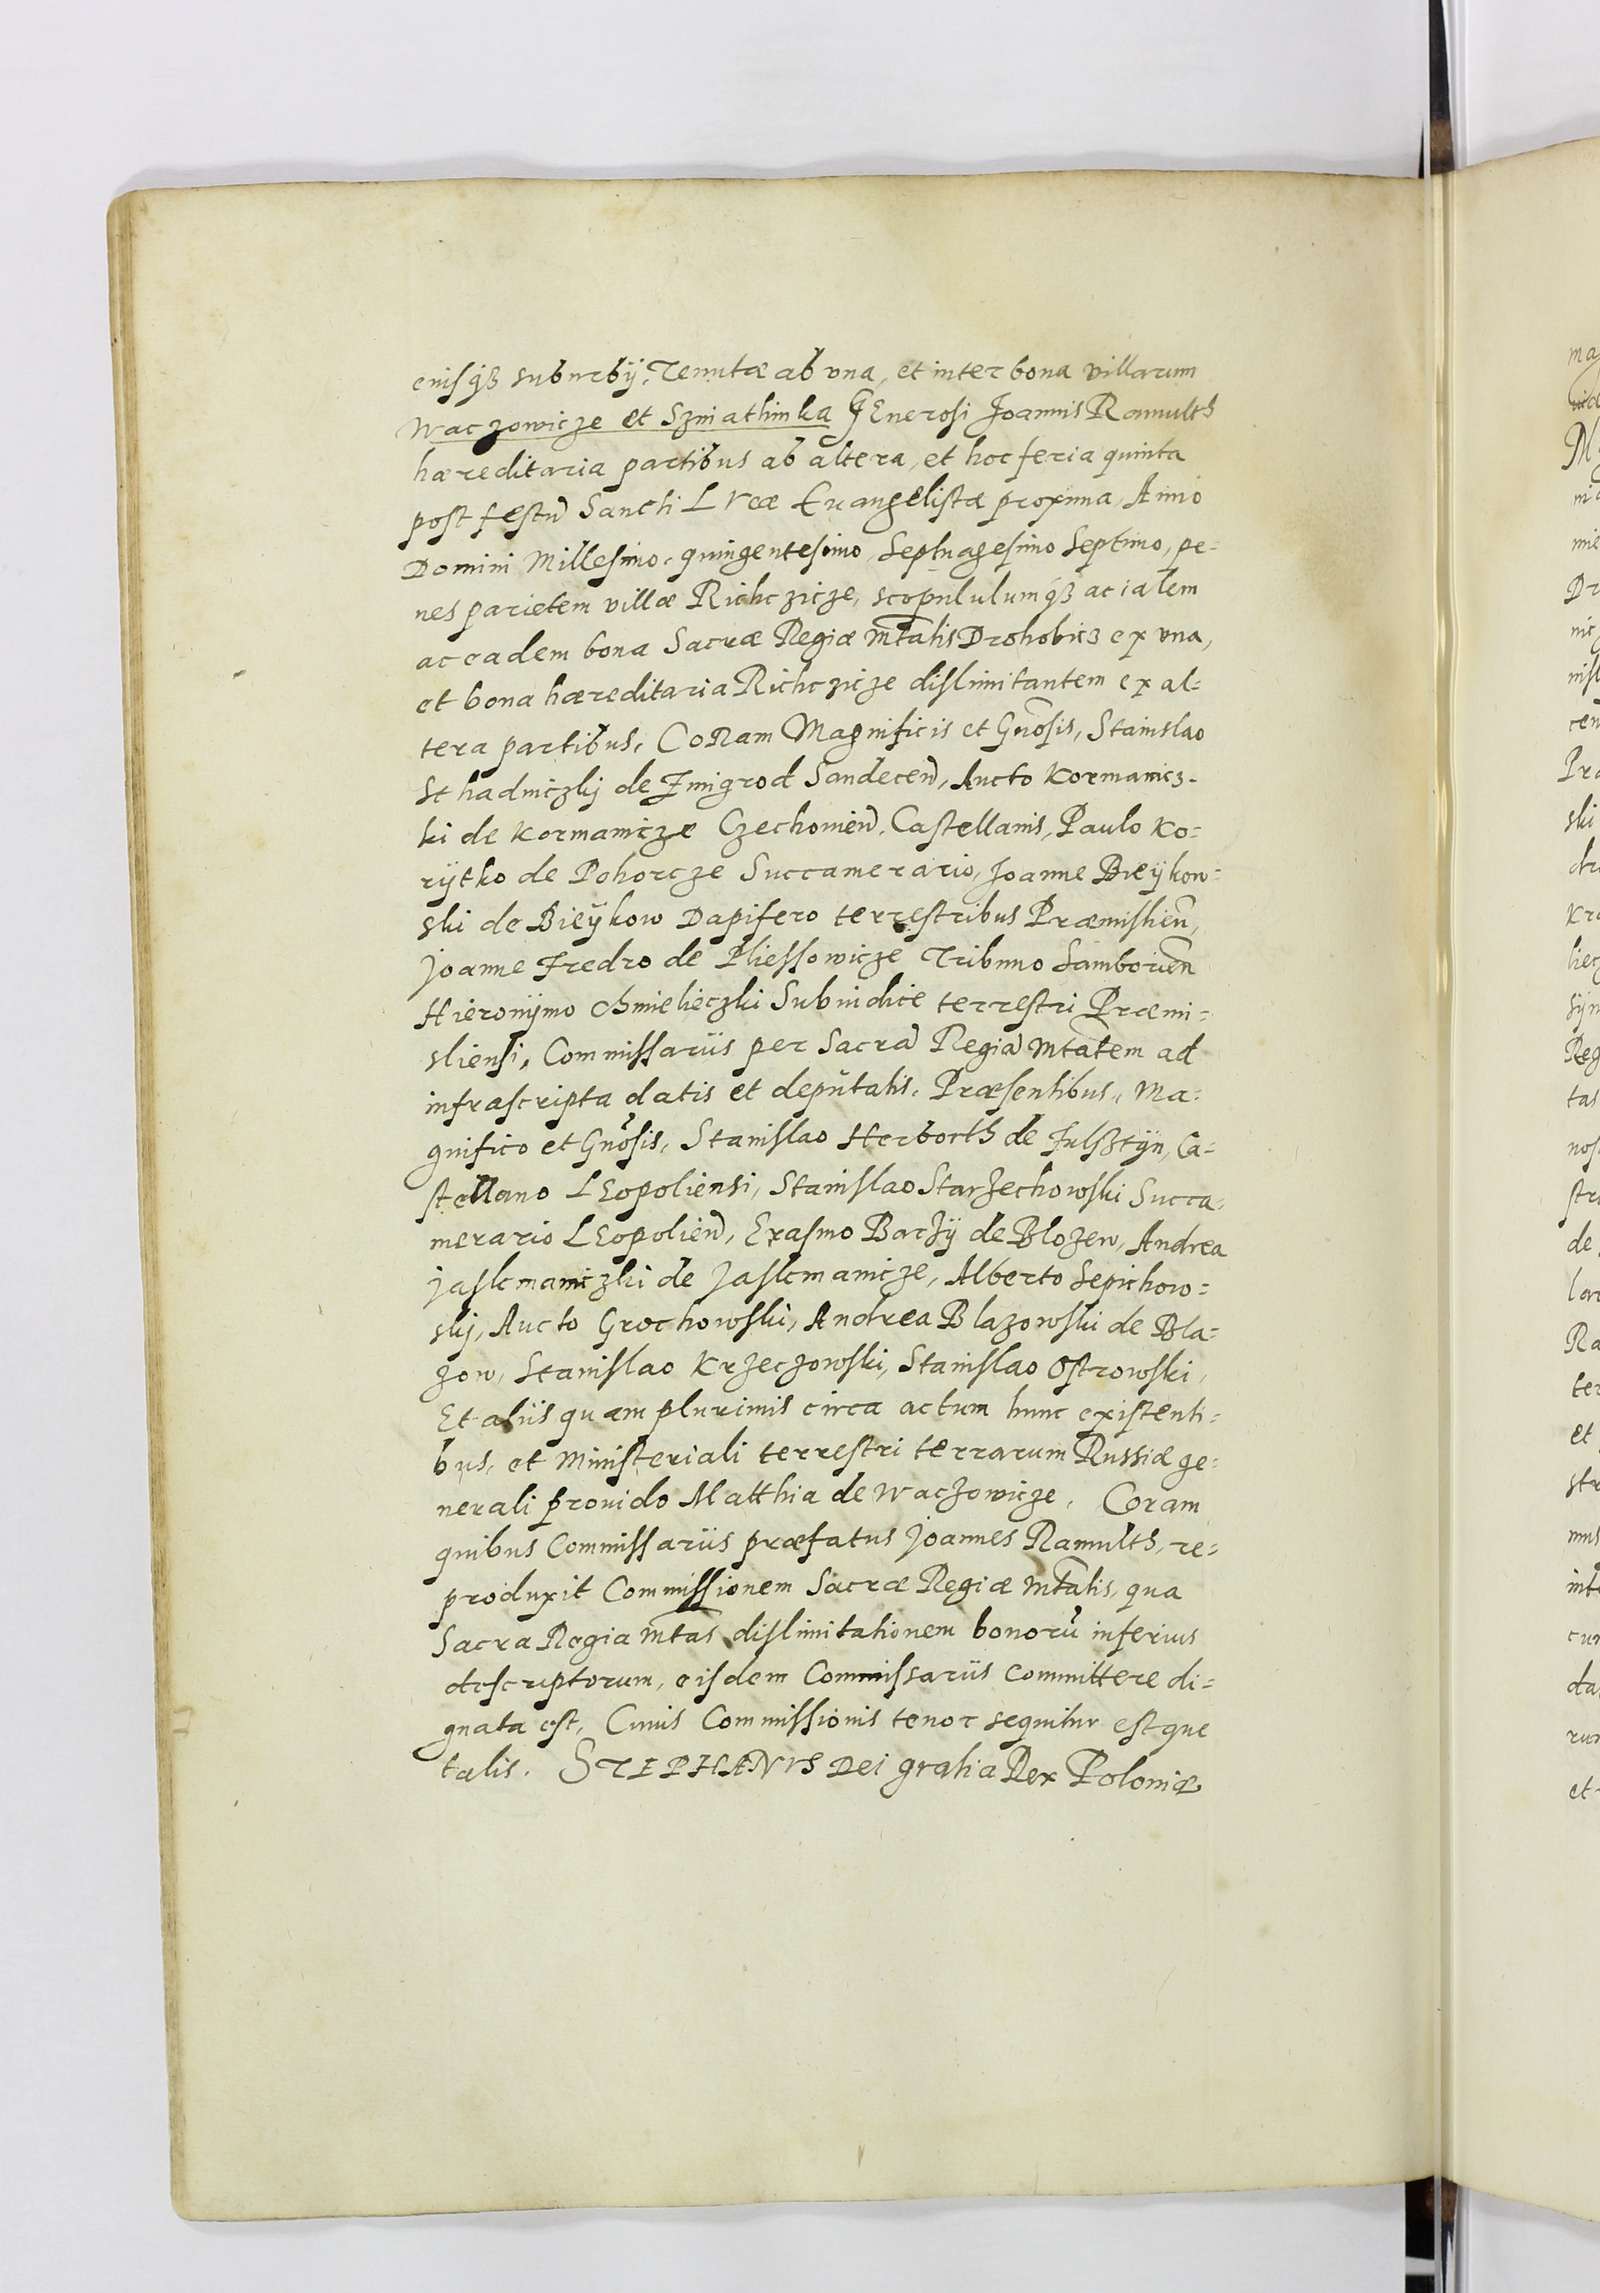 eiusqꝫ suburbÿ, Tenutæ ab vna, et inter bona villarum
Waczowicze et Szniathinka GEnerosi Joannis Ramulth
hæreditaria partibus ab altera, et hoc feria quinta
post festũ Sancti LVcæ Euangelistæ proxima, Anno
Domini Millesimo, quingentesimo, Septuagesimo Septimo, pe-
nes parietem villæ Richczicze, scopululumqꝫ acialem
ac eadem bona Sacræ Regiæ Mtatis Drohobicz ex vna,
et bona hæreditaria Richczicze dislimitantem ex al-
tera partibus, CoRam Magnificis et Gnõsis, Stanislao
Sthadniczkij de Zmigrod Sandecen̄, Aucto Kormanicz-
ki de Kormanicze Czechouien̄, Castellanis, Paulo Ko-
rÿtko de Pohorcze Succamerario, Joanne Bieÿkow-
ski de Bieÿkow Dapifero terrestribus Præmislien̄,
Joanne Fredro de Pliessowicze Tribuno Samborien̄
Hieronÿmo Chmielieczki Subiudice terrestri Præmi-
sliensi, Commissariis per Sacrã Regiã Mtatem ad
infrascripta datis et deputatis. Præsentibus, Ma-
gnifico et Gnõsis, Stanislao Herborth de Fulsztÿn, Ca-
stellano LEopoliensi, Stanislao Starzechowski Succa-
merario LEopolien̄, Erasmo Baczÿ de Blozew, Andrea
Jaslcmaniczki de Jaslcmanicze, Alberto Sepichow-
skj, Aucto Grochowski, Andrea Blazowski de Bla-
zow, Stanislao Krzeczowski, Stanislao Ostrowski,
Et aliis quam plurimis circa actum hunc existenti-
bus, et Ministeriali terrestri terrarum Russiæ ge-
nerali prouido Matthia de Waczowicze, Coram
quibus Commissariis præfatus Joannes Ramulth, re-
produxit Commissionem Sacræ Regiæ Mtatis, qua
Sacra Regia Mtas dislimitationem bonorũ inferius
descriptorum, eisdem Commissariis committere di-
gnata est, Cuius Commissionis tenor sequitur estque
talis. STEPHANVS Dei gratia Rex Poloniæ